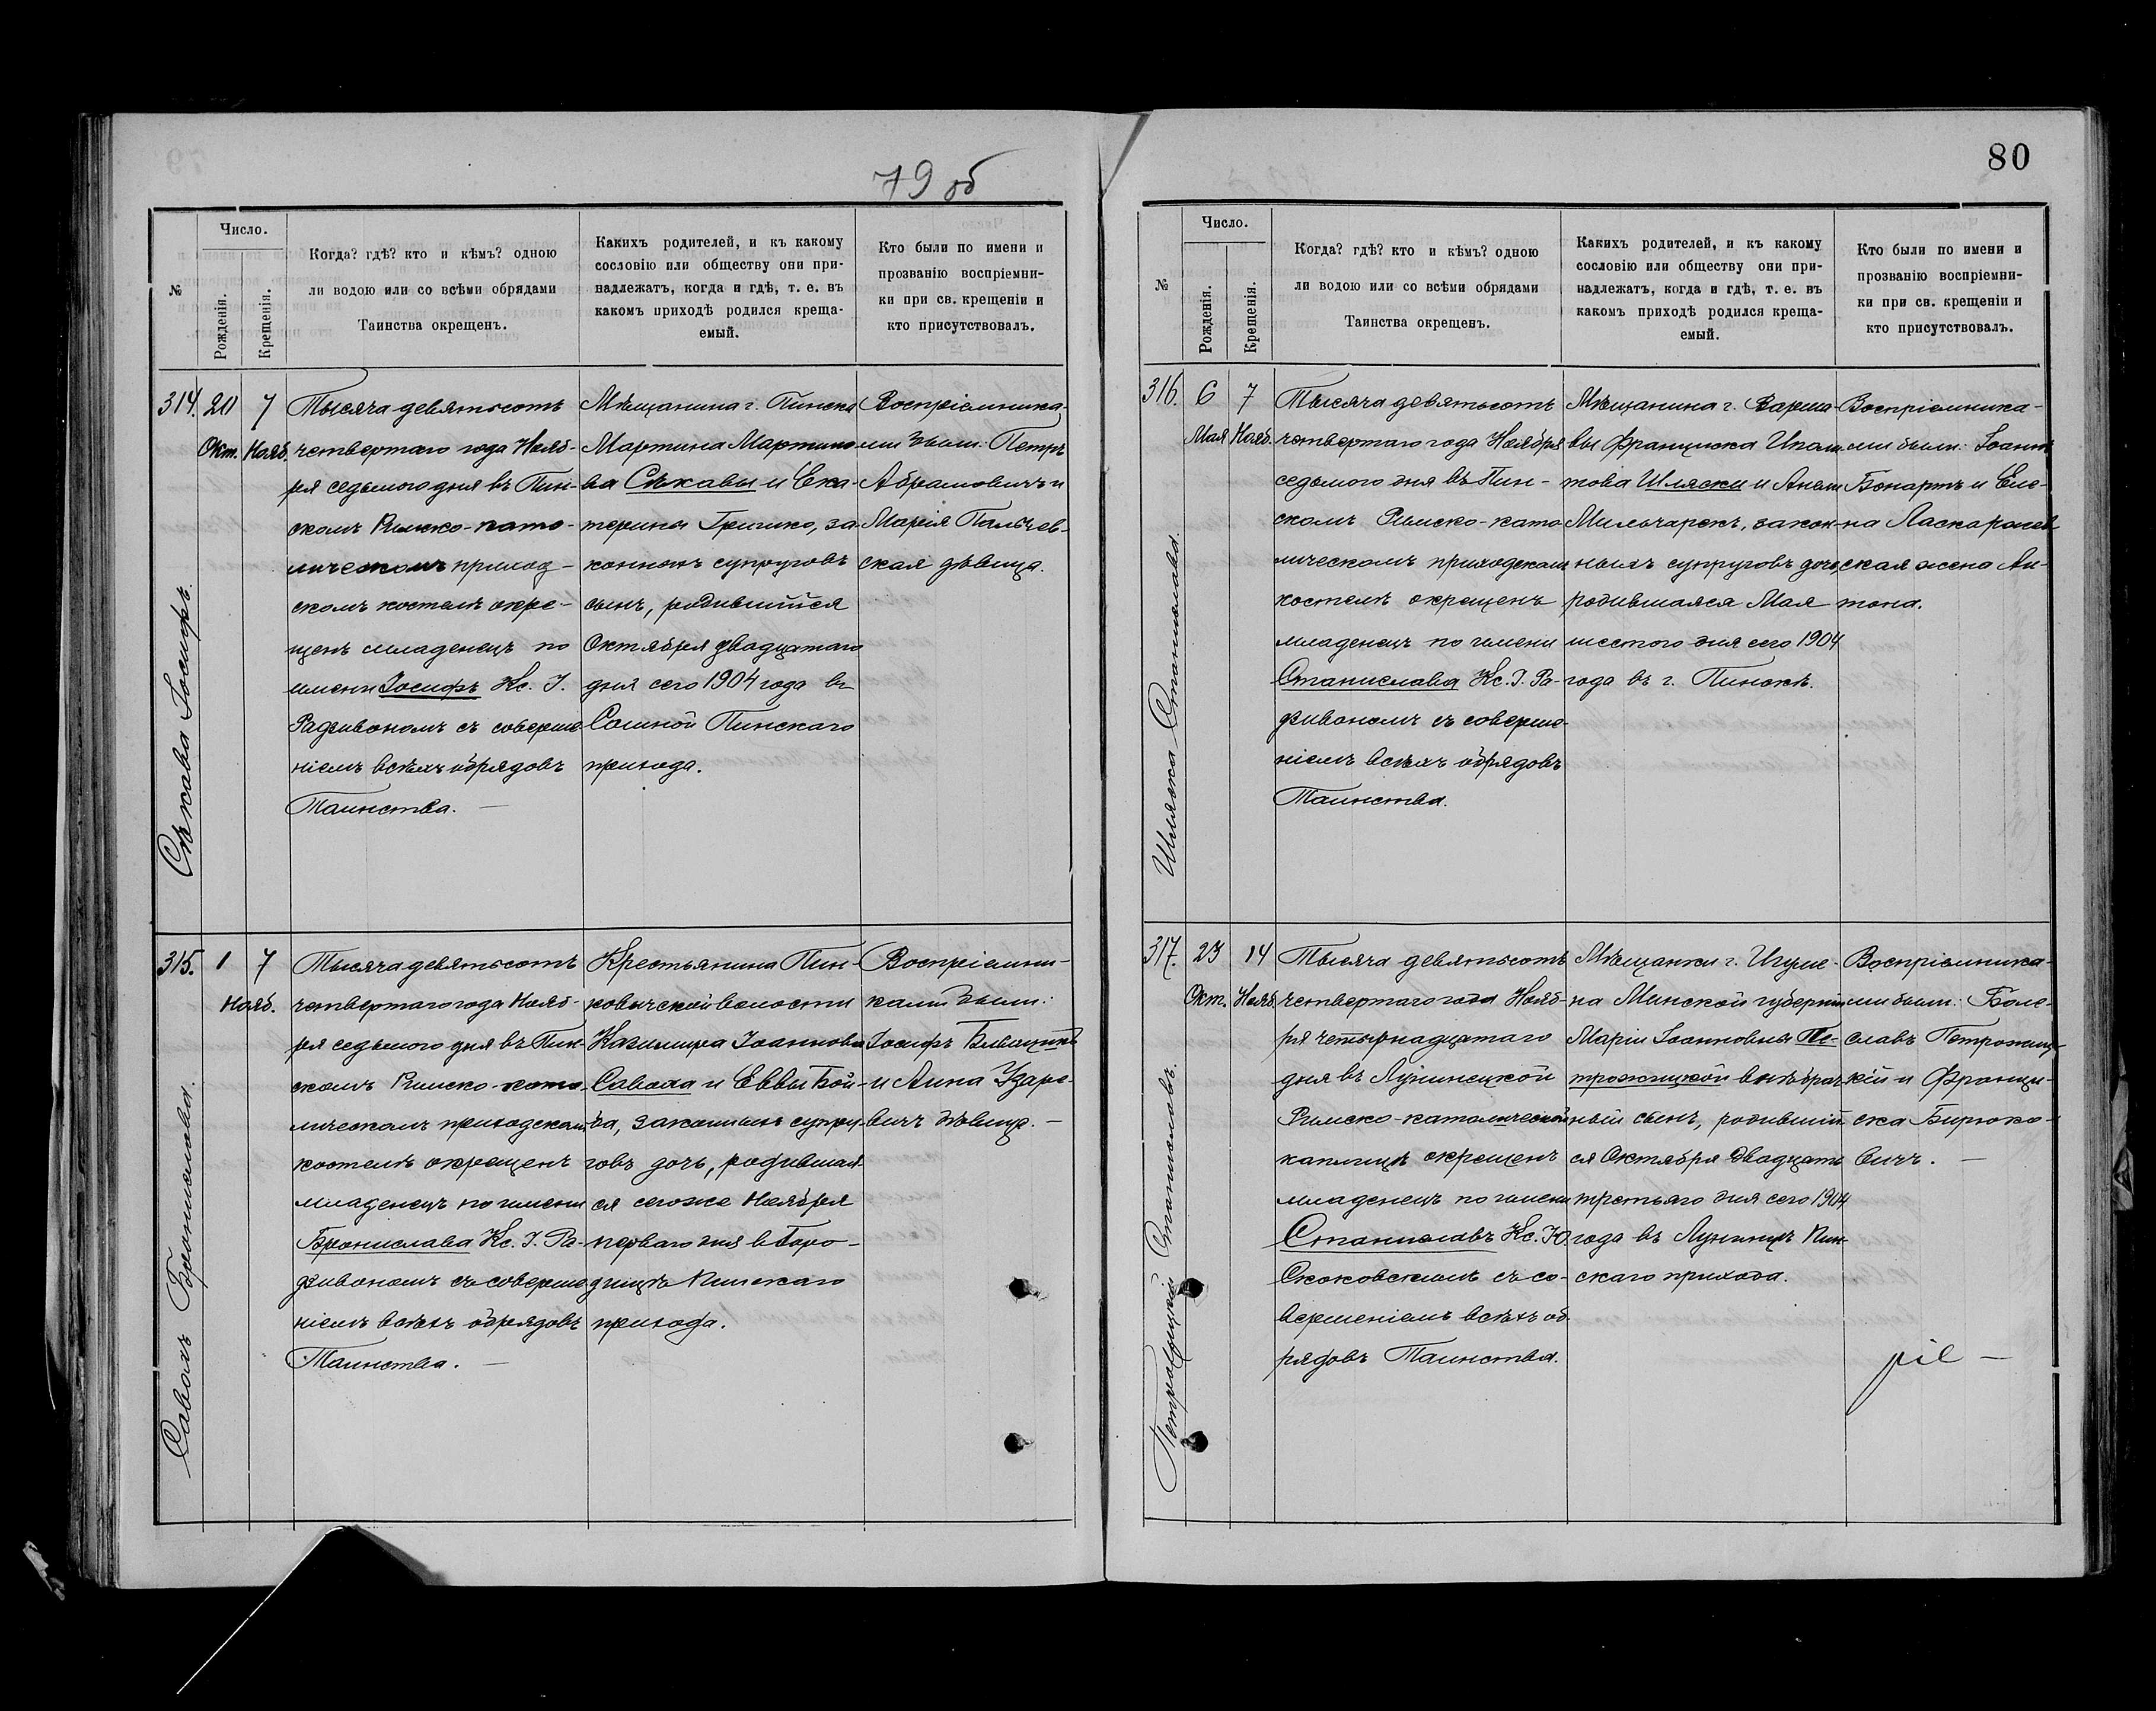 79 об
№
Число.
Рожденія.
Крещенія.
Когда? гдѣ? кто и кѣмъ? одною
ли водою или со всѣми обрядами
Таинства окрещенъ.
Какихъ родителей, и къ какому
сословію или обществу они при-
надлежатъ, когда и гдѣ, т. е. въ
какомъ приходѣ родился креща-
емый.
Кто были по имени и
прозванію воспріемни-
ки при св. крещеніи и
кто присутствовалъ.
314.
Сѣкава Іосифъ.
20
Окт.
7
Нояб.
Тысяча девятьсотъ
четвертаго года Нояб-
ря седьмого дня въ Пин-
скомъ Римско-като-
лическомъ приход-
скомъ костелѣ окре-
щенъ младенецъ по
имени Іосифъ Кс. І.
Радзивономъ съ соверше-
ніемъ всѣхъ обрядовъ
Таинства. —
Мѣщанина г. Пинска
Мартина Мартино-
ва Сѣкавы и Ека-
терины Гришко, за-
конныхъ супруговъ
сынъ, родившійся
Октября двадцатаго
дня сего 1904 года въ
Сошной Пинскаго
прихода.
Воспріемника-
ми были: Петръ
Абрамовичъ и
Марія Пальчев-
ская дѣвица.
315.
Саволъ Бронислава.
1
7
Нояб.
Тысяча девятьсотъ
четвертаго года Нояб-
ря седьмого дня въ Пин-
скомъ Римско-като-
лическомъ приходскомъ
костелѣ окрещенъ
младенецъ по имени
Бронислава Кс. І. Ра-
дзивономъ съ соверше-
ніемъ всѣхъ обрядовъ
Таинства. —
Крестьянина Пин-
ковичской волости
Казимира Іоаннова
Савола и Еввы Бой-
ка, законныхъ супру-
говъ дочь, родившая-
ся сегоже Ноября
перваго дня въ Горо-
дищѣ Пинскаго
прихода.
Воспріемни-
ками были:
Іосифъ
и Анна
вичъ дѣвица. —
80
№
Число.
Рожденія.
Крещенія.
Когда? гдѣ? кто и кѣмъ? одною
ли водою или со всѣми обрядами
Таинства окрещенъ.
Какихъ родителей, и къ какому
сословію или обществу они при-
надлежатъ, когда и гдѣ, т. е. въ
какомъ приходѣ родился креща-
емый.
Кто были по имени и
прозванію воспріемни-
ки при св. крещеніи и
кто присутствовалъ.
316.
Шляска Станислава.
6
Мая
7
Нояб.
Тысяча девятьсотъ
четвертаго года Ноября
седьмого дня въ Пин-
скомъ Римско-като-
лическомъ приходскомъ
костелѣ окрещенъ
младенецъ по имени
Станислава Кс. І. Ра-
дзивономъ съ соверше-
ніемъ всѣхъ обрядовъ
Таинства.
Мѣщанина г. Варша-
вы Франциска Иполи-
това Шляски и Анели
Мильчарекъ, закон-
ныхъ супруговъ дочь,
родившаяся Мая
шестого дня сего 1904
года въ г. Пинскѣ.
Воспріемника-
ми были: Іоаннъ
Бонартъ и Еле-
на
ская жена Ан-
тона.
317.
Петрожицкій Станиславъ.
23
Окт.
14
Нояб.
Тысяча девятьсотъ
четвертаго года Нояб-
ря четырнадцатаго
дня въ Лунинецкой
Римско-католической
каплицѣ окрещенъ
младенецъ по имени
Станиславъ Кс. Ю.
Скоковскимъ съ со-
вершеніемъ всѣхъ об-
рядовъ Таинства.
Мѣщанки г. Игуме-
на Минской губерніи
Маріи Іоанновны Пе-
трожицкой внѣбрач-
ный сынъ, родившій-
ся Октября двадцать
третьяго дня сего 1904
года въ Лунинцѣ Пин-
скаго прихода.
Воспріемника-
ми были: Боле-
славъ Петрожиц-
кій и Франци-
ска Бирюко-
вичъ. —